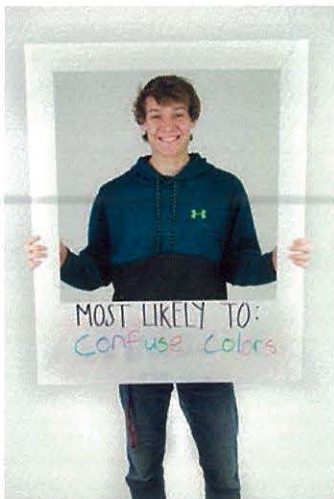 MOST LIKELY TO:
Confuse Colors